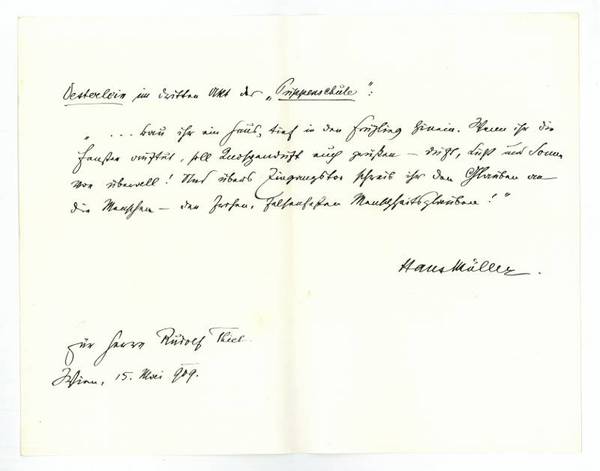 Oesterlein im dritten Akt der „Puppenschule":
„ ... bau ihr ein Haus, tief in den Frühling hinein. Wenn ihr die
Fenster auftut, soll Knospenduft euch grüßen – Duft, Luft und Sonne
von überall! Und übers Eingangstor schreib ihr den Glauben an
die Menschen – den hohen, felsenfesten Menschheitsglauben!"
Hans Müller.
Für Herrn Rudolf Thiel.
Wien, 15. Mai 909.